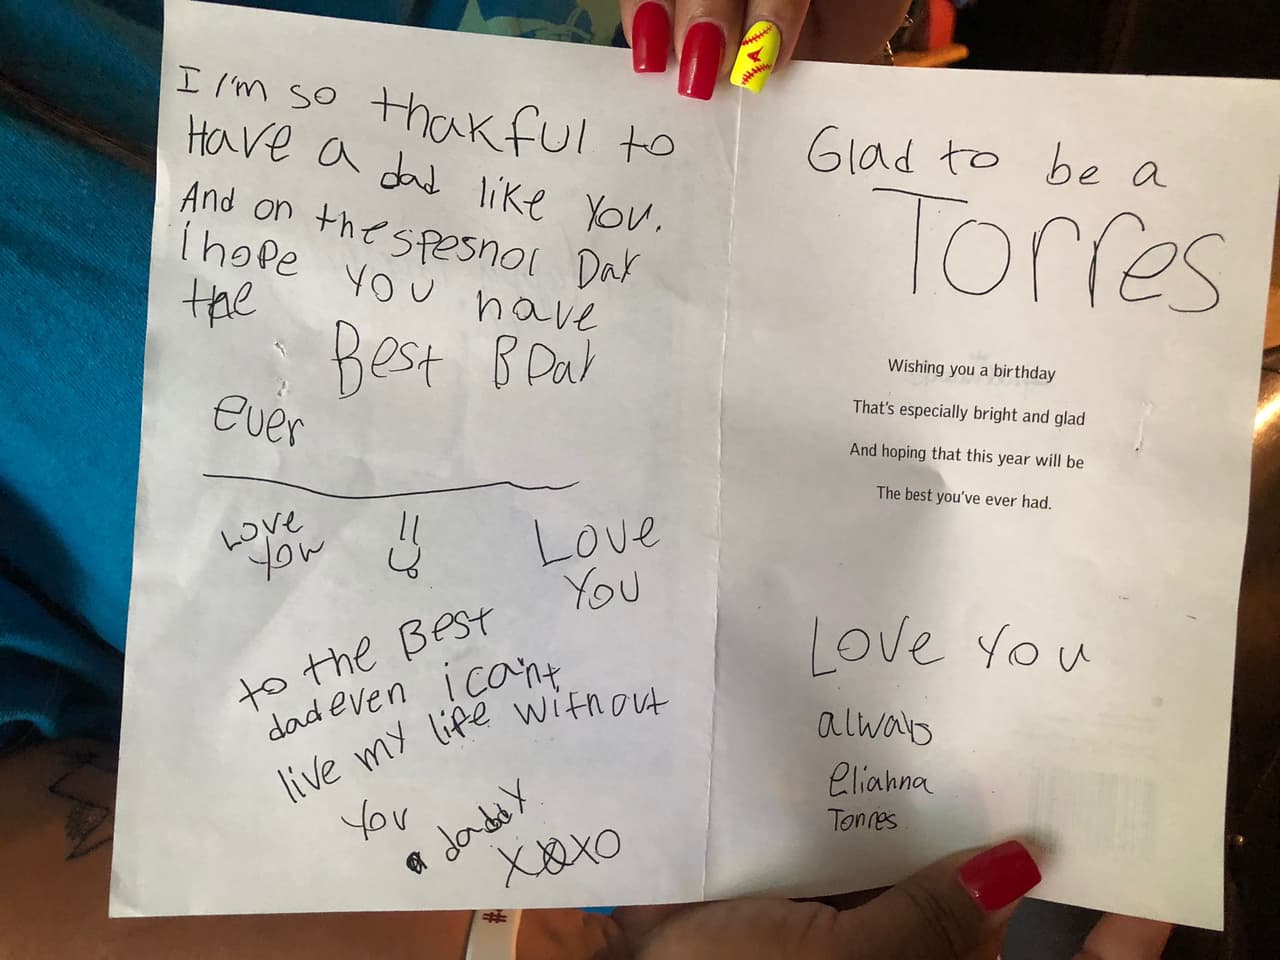 I I'm so thakful to
Have a dad like You.
And on the spesnol Day
i hope you have
the
Best BDay
ever
Love
You
Love
You
to the Best
dad even i can't
live my life without
You
daddy
XOXO
Glad to be a
Torres
Wishing you a birthday
That's especially bright and glad
And hoping that this year will be
The best you've ever had.
Love You
always
Eliahna
Torres